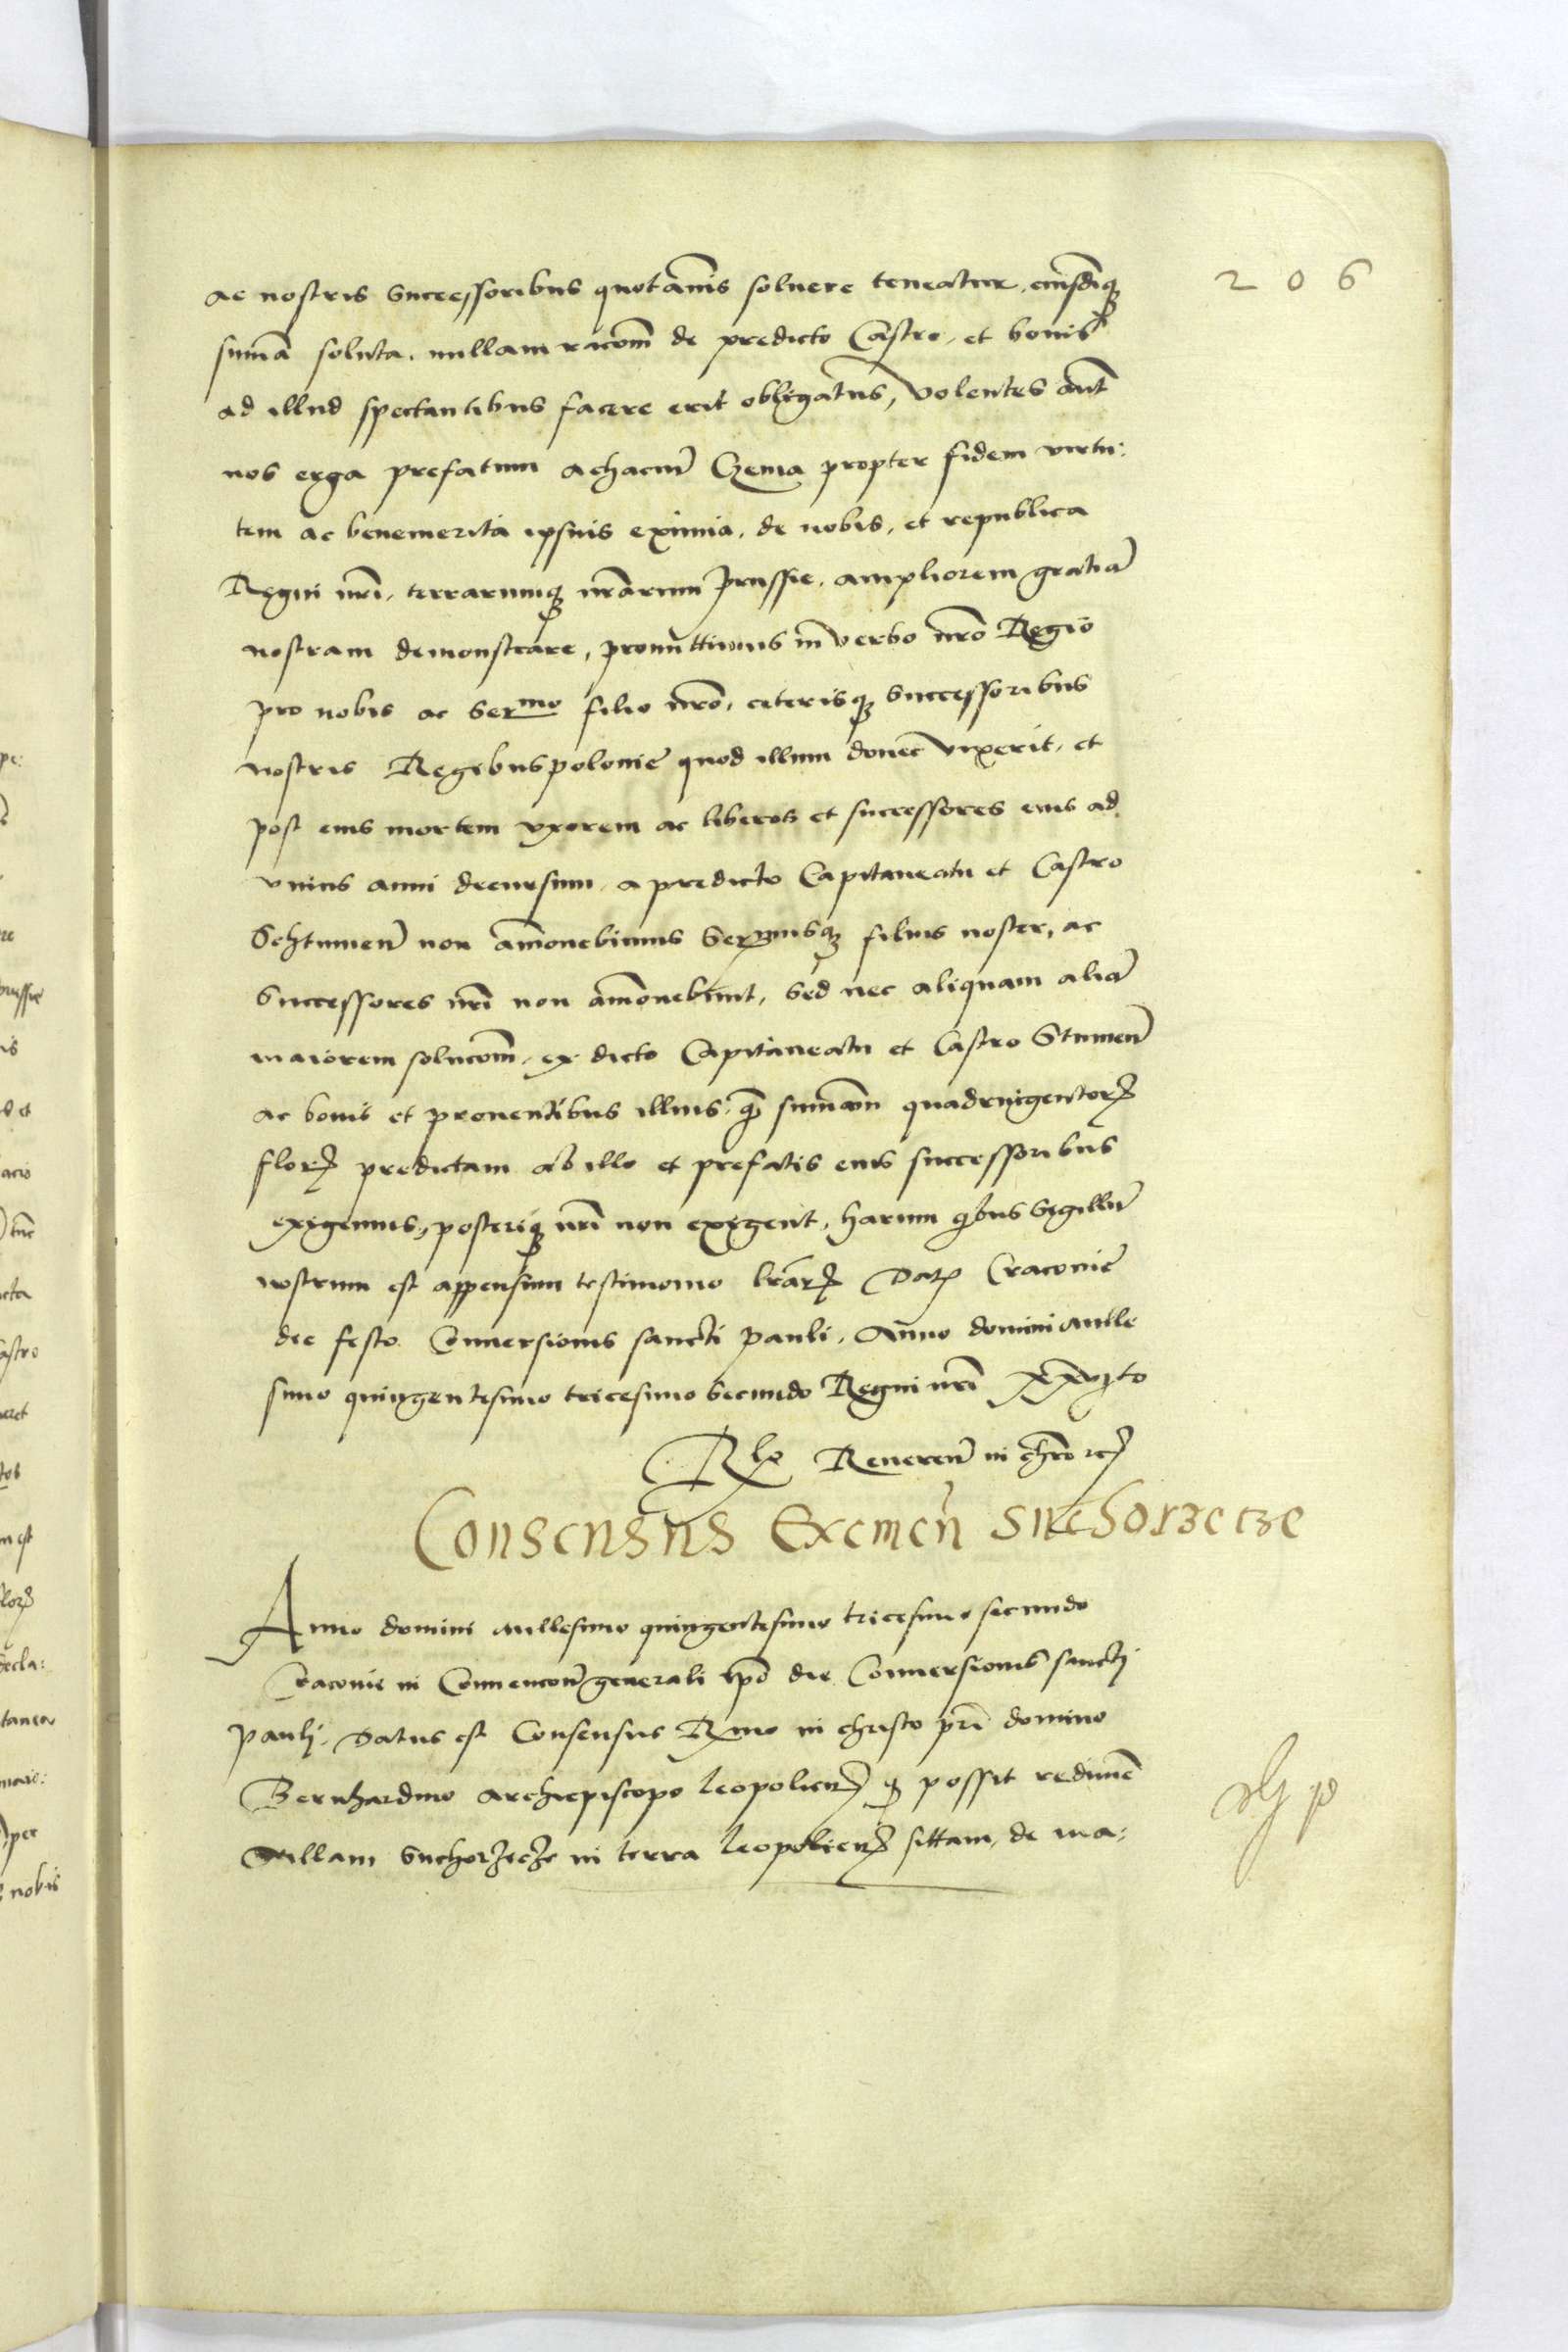 206
ac nostris successoribus quotannis soluere teneatur, eiusdẽq3
sumã soluta, nullam racom̃ de predicto Castro, et bonis
ad illud spectantibus facere erit obligatus, Volentes aut̃
nos erga prefatum Achaciũ Czema propter fidem virtu:
tem ac benemerita ipsius eximia, de nobis, et republica
Regni nr̃i, terrarumq3 nr̃arum Prussie, ampliorem gratiã
nostram demonstrare, promittimus in verbo nr̃o Regio
pro nobis ac Sermo filio nr̃o, ceterisq3 successoribus
nostris Regibus polonie quod illum donec vixerit, et
post eius mortem vxorem ac liberos et successores eius ad
vnius anni decursum, a predicto Capitaneatu et Castro
Schtumeñ non amouebimus Sermusq3 filius noster, ac
Successores nr̃i non amouebunt, Sed nec aliquam aliã
maiorem solucom̃, ex dicto Capitaneatu et Castro Stumeñ
ac bonis et prouentibus illius, q̃ summam quadringentor3
flor3 predictam ab illo et prefatis eius successoribus
exigemus, posteriq3 nr̃i non exigent, harum q̃bus sigillũ
nostrum est appensum testimonio lr̃ar3 Dat3 Cracouie
die festo Conuersionis sancti pauli, Anno domini mille
simo quingentesimo tricesimo secundo Regni nr̃i xxvjto
Rlo Reuereñ in chr̃o rc3
Consensus Exemeñ Suchorzecze
Anno domini millesimo quingentesimo tricesimo secundo
Cracouie in Conuencoñ generali ip̃o die Conuersionis sancti
pauli, Datus est Consensus Rmo in christo pr̃i domino
Bernhardino Archiepiscopo leopolien̄ q̃ possit redimẽ
villam Suchorzecze in terra leopolien̄ sittam, de ma: